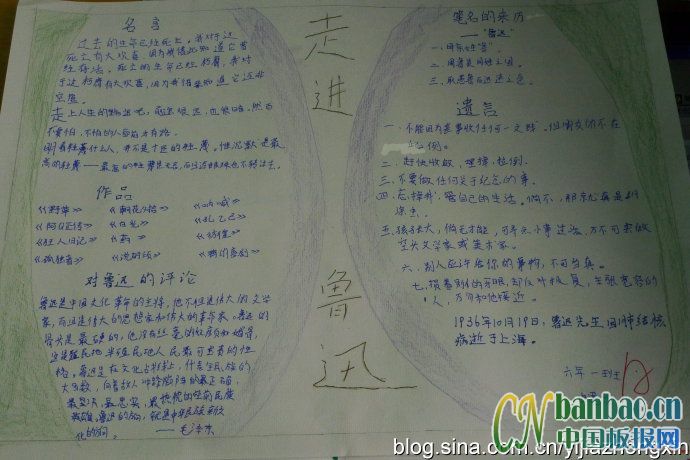 名言
过去的生命已经死亡。我对于这
死亡有大欢喜,因为我借此知道它曾
经存活。死亡的生命已经朽腐。我对
于这朽腐有大欢喜,因为我借此知道它还非
空虚。
走上人生的
不要怕,不怕的人面前才有路。
作品
《野草》 《朝花夕拾》 《呐喊》
《阿Q正传》 《社戏》 《孔乙己》
《狂人日记》 《药》 《彷徨》
《孤独者》 《故事新编》
对鲁迅的评论
鲁迅是中国文化革命的主将,他不但是伟大的文学
家,而且是伟大的思想家和伟大的革命家。鲁迅的
骨头是最硬的,他没有丝毫的奴颜和媚骨,
这是殖民地半殖民地人民最可宝贵的性
格。鲁迅是在文化战线上,
大多数,向着敌人冲锋陷阵的最正确,
最坚决、最忠实、最热忱的空前民族
英雄,鲁迅的方向,就是中华民族新文
化的方向。
——毛泽东
走
进
鲁
迅
笔名的来历
——"鲁迅"
一、母亲姓"鲁"。
二、周鲁是同姓之国。
三、取愚鲁而迅速之意。
遗言
一、不能因为丧事收任何一文钱。但朋友的不在
此例。
二、赶快收敛,埋掉,拉倒。
三、不要做任何关于纪念的事。
四、忘掉我,管自己的生活。倘不,那就真是糊
涂虫。
五、孩子长大,倘无才能,可寻点小事过活,万不可去做
空头文学家或美术家。
六、别人应许给你的事物,不可当真。
七、损着别人的牙眼,却反对报复,主张宽容的
人,万勿和他接近。
1936年10月19日,鲁迅先生因肺结核
病逝于上海。
六年一班
CNbanbao.cn
中国板报网
blog.sina.com.cn/yijiazhongxin